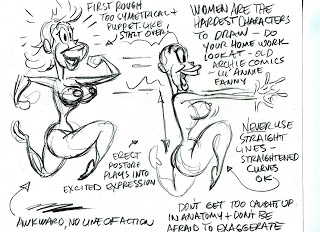 FIRST ROUGH
TOO CYMETRICAL +
PUPPET-LIKE
START OVER!
WOMEN ARE THE
HARDEST CHARACTERS
TO DRAW - DO
YOUR HOMEWORK
LOOK AT - OLD
ARCHIE COMICS
- LIL' ANNIE
FANNY
NEVER USE
STRAIGHT
LINES -
STRAIGHTENED
CURVES
OK
ERECT
POSTURE
PLAYS INTO
EXCITED EXPRESSION
AWKWARD, NO LINE OF ACTION
DON'T GET TOO CAUGHT UP
IN ANATOMY + DON'T BE
AFRAID TO EXAGGERATE